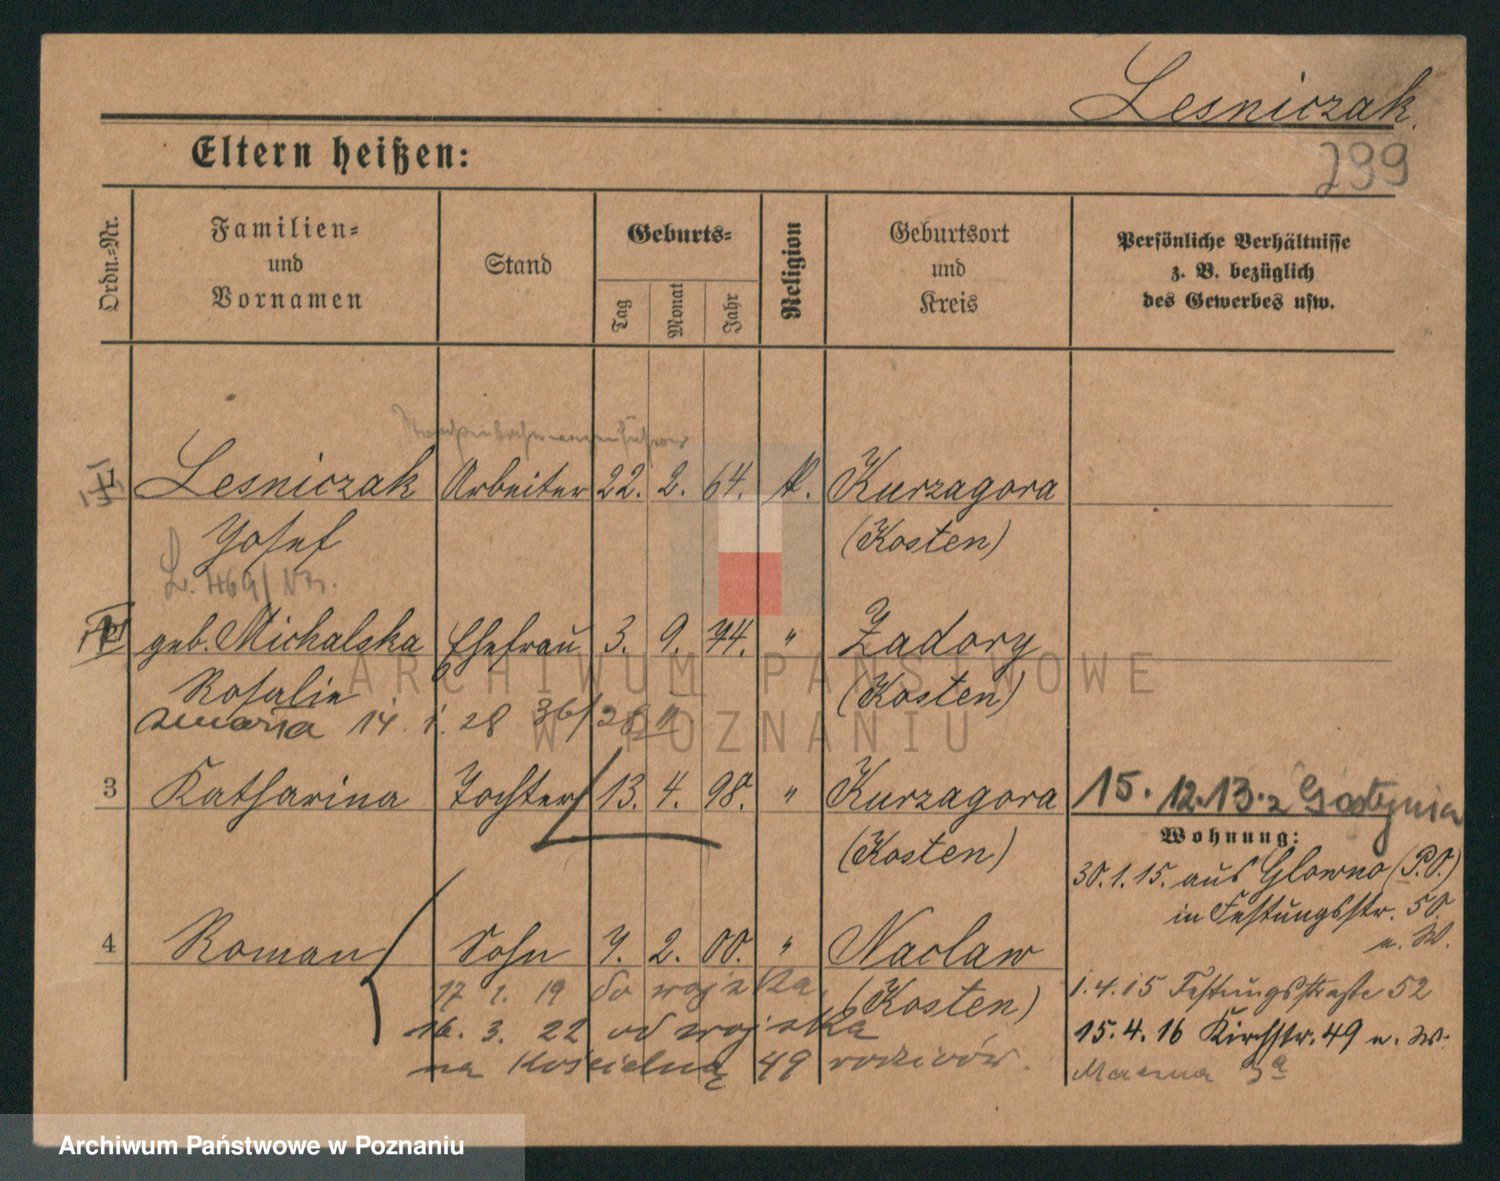 Lesniczak.
Eltern heißen:
299
Ordn.-Nr.
Familien-
und
Vornamen
Stand
Geburts-
Tag
Monat
Jahr
Religion
Geburtsort
und
Kreis
Persönliche Verhältnisse
z. B. bezüglich
des Gewerbes usw.
Straßenbahnwagenführer
1 Lesniczak Arbeiter 22. 2. 64. k. Kurzagora
Josef (Kosten)
geb. Michalska Ehefrau 3. 9. 74. " Zadory
Rosalie (Kosten)
zmarła 14. 1. 28 36/28 II
3 Katharina Tochter 13. 4. 98. " Kurzagora
(Kosten)
15. 12. 13. z Gostynia
Wohnung:
30. 1. 15. aus Glowno (P.O.)
in Festungsstr. 50.
n. W.
4 Roman Sohn 7. 2. 00. " Naclaw
(Kosten)
17 1. 19 do wojska
16. 3. 22 od wojska
na Kościelną 49 rodziców.
1.4.15 Festungsstraße 52
15.4.16 Kirchstr. 49 n. W.
3a
ARCHIWUM PAŃSTWOWE
W POZNANIU
Archiwum Państwowe w Poznaniu